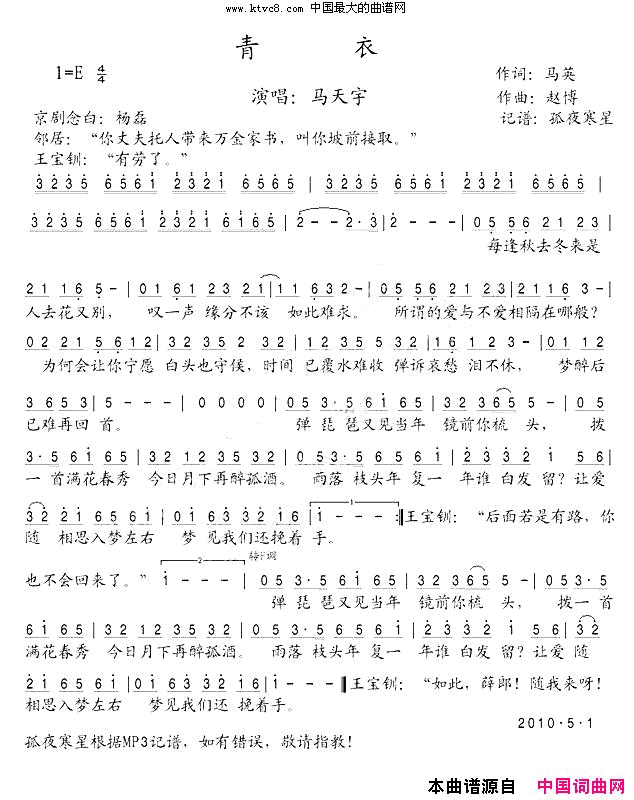 www.ktvc8.com 中国最大的曲谱网
青 衣
1=E 4/4
作词：马英
演唱：马天宇
作曲：赵博
京剧念白：杨磊
记谱：孤夜寒星
邻居：“你丈夫托人带来万金家书，叫你坡前接取。”
王宝钏：“有劳了。”
3235 6561 2321 6565 | 3235 6561 2321 6565 |
3235 6561 2321 6565 | 2 - - 2·3 | 2 - - - | 05 56 21 23 |
每逢秋去冬来是
21 16 5 - | 01 61 23 21 | 11 632 - | 05 56 56 23 | 21 16 3 - |
人去花又别， 叹一声 缘分不该 如此难求。 所谓的爱与不爱相隔在哪般？
02 21 5 612 | 12 35 3 23 | 05 32 12 35 | 32 12 1 - | 02 12 |
为何会让你宁愿 白头也守侯，时间 已覆水难收 弹诉哀愁 泪不休， 梦醉后
3 653 | 5 - - - | 0 0 0 0 | 05 3·5 61 65 | 32 365 3 - | 05
已难再回 首。 弹 琵 琶又见当年 镜前你梳 头， 拨
3·5 61 65 | 32 12 35 32 | 05 3·5 656 1 | 2 32 1 65 | 05
一 首满花春秀 今日月下再醉孤酒。 雨落 枝头年 复一 年谁 白发 留？让爱
32 21 65 65 | 01 63 32 16 | 1 - - - :‖ 王宝钏：“后面若是有路，你
随 相思入梦左右 梦 见我们还挽着 手。
转F调
也不会回来了。” 1 - - - | 05 3·5 61 65 | 32 365 3 - | 05 3·5
弹 琵 琶又见当年 镜前你梳 头， 拨一首
61 65 | 32 12 35 32 | 05 3·5 656 1 | 2 32 1 65 | 05 32
满花春秀 今日月下再醉孤酒。 雨落 枝头年 复一 年谁白发 留？让爱 随
21 65 65 | 01 63 32 16 | 1 - - - ‖ 王宝钏：“如此，薛郎！随我来呀！
相思入梦左右 梦见我们还 挽着手。
2010·5·1
孤夜寒星根据MP3记谱，如有错误，敬请指教！
本曲谱源自 中国词曲网